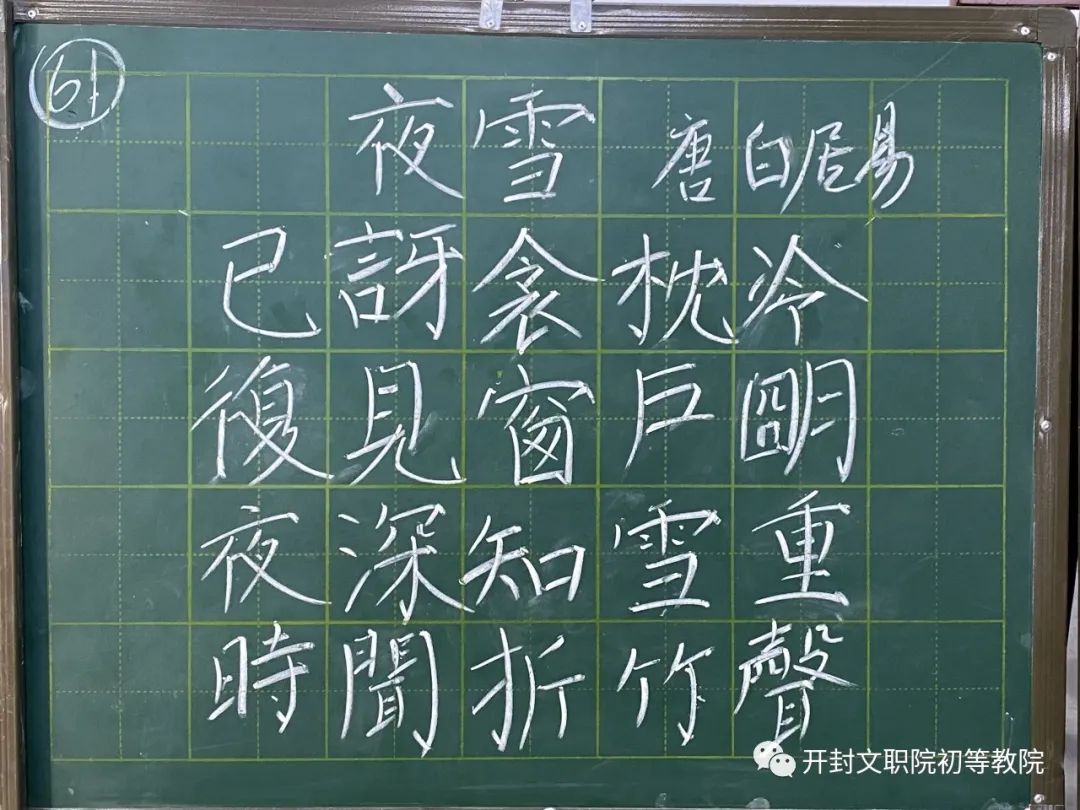 61
夜雪 唐 白居易
已訝衾枕冷
復見窗戶朙
夜深知雪重
時聞折竹聲
开封文职院初等教院